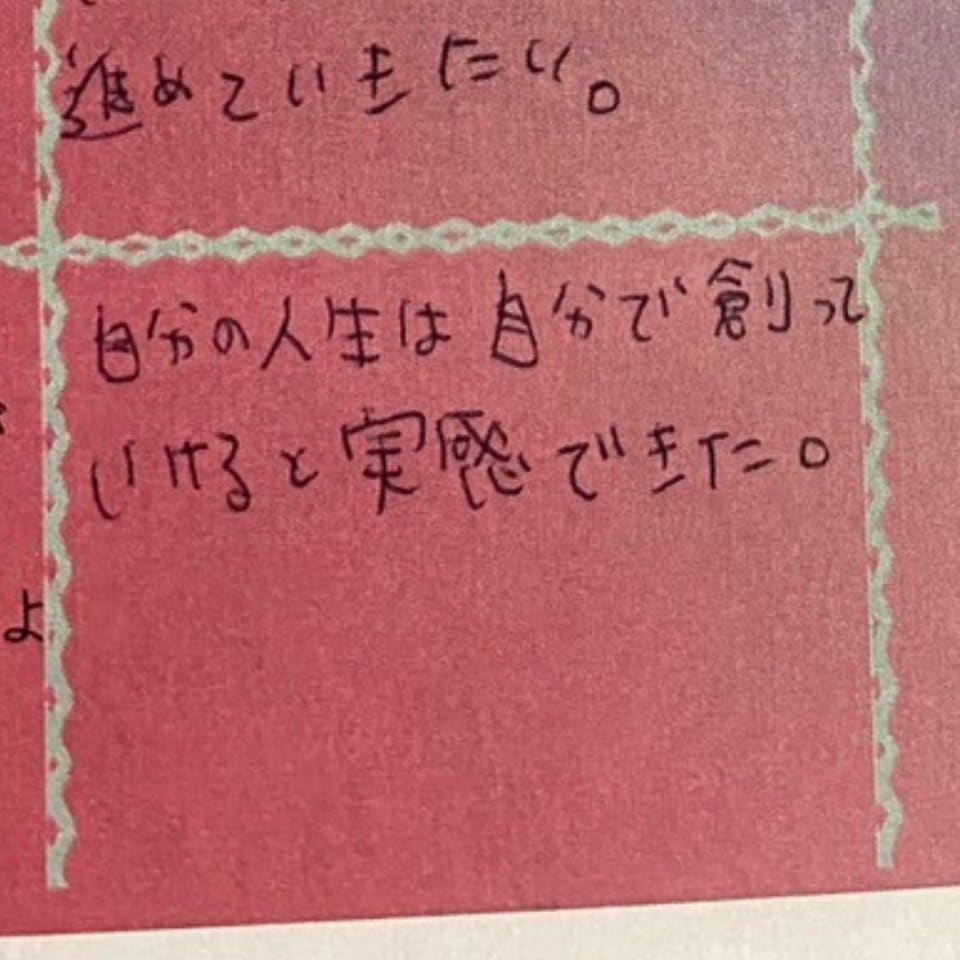 進めていきたい。
自分の人生は自分で創って
いけると実感できた。
よ